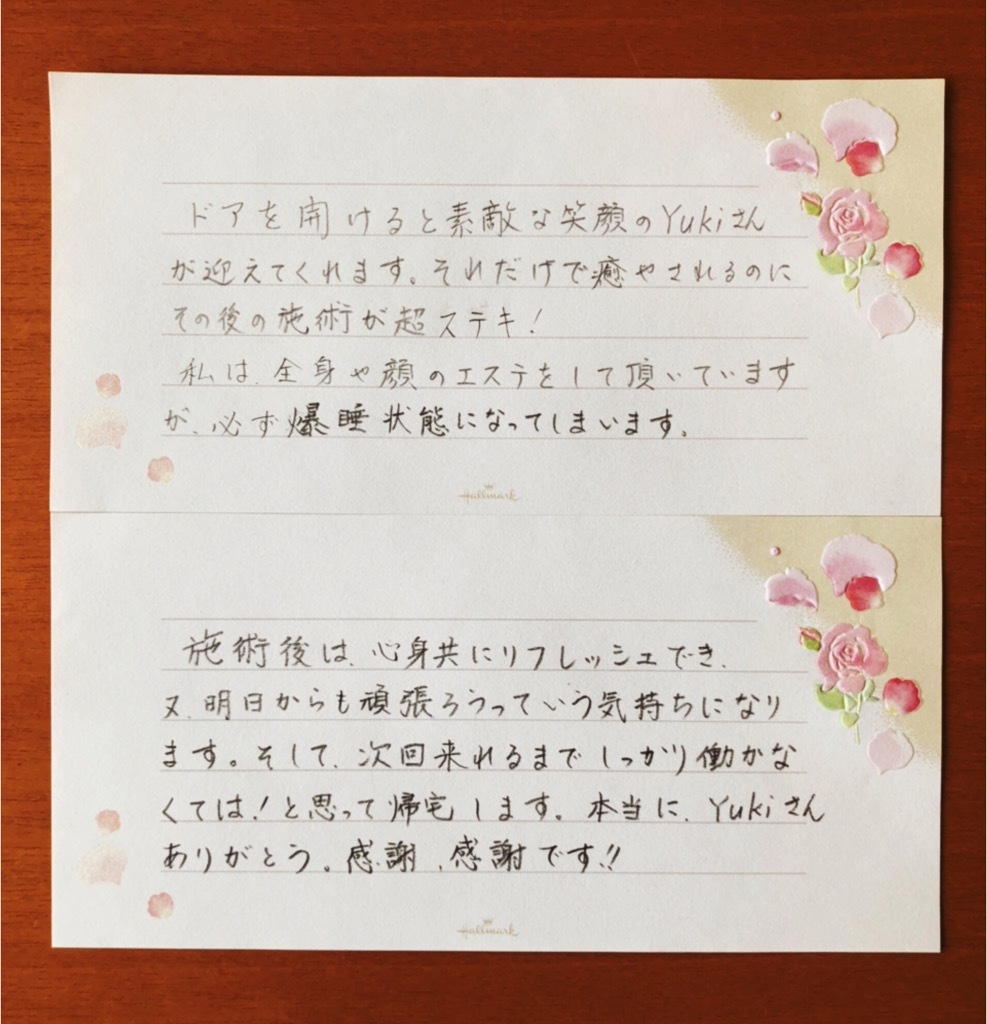 ドアを開けると素敵な笑顔のYukiさん
が迎えてくれます。それだけで癒やされるのに
その後の施術が超ステキ!
私は、全身や顔のエステをして頂いています
が、必ず爆睡状態になってしまいます。
Hallmark
施術後は、心身共にリフレッシュでき、
又、明日からも頑張ろうっていう気持ちになり
ます。そして、次回来れるまでしっかり働かな
くては!と思って帰宅します。本当に、Yukiさん
ありがとう。感謝、感謝です!!
Hallmark